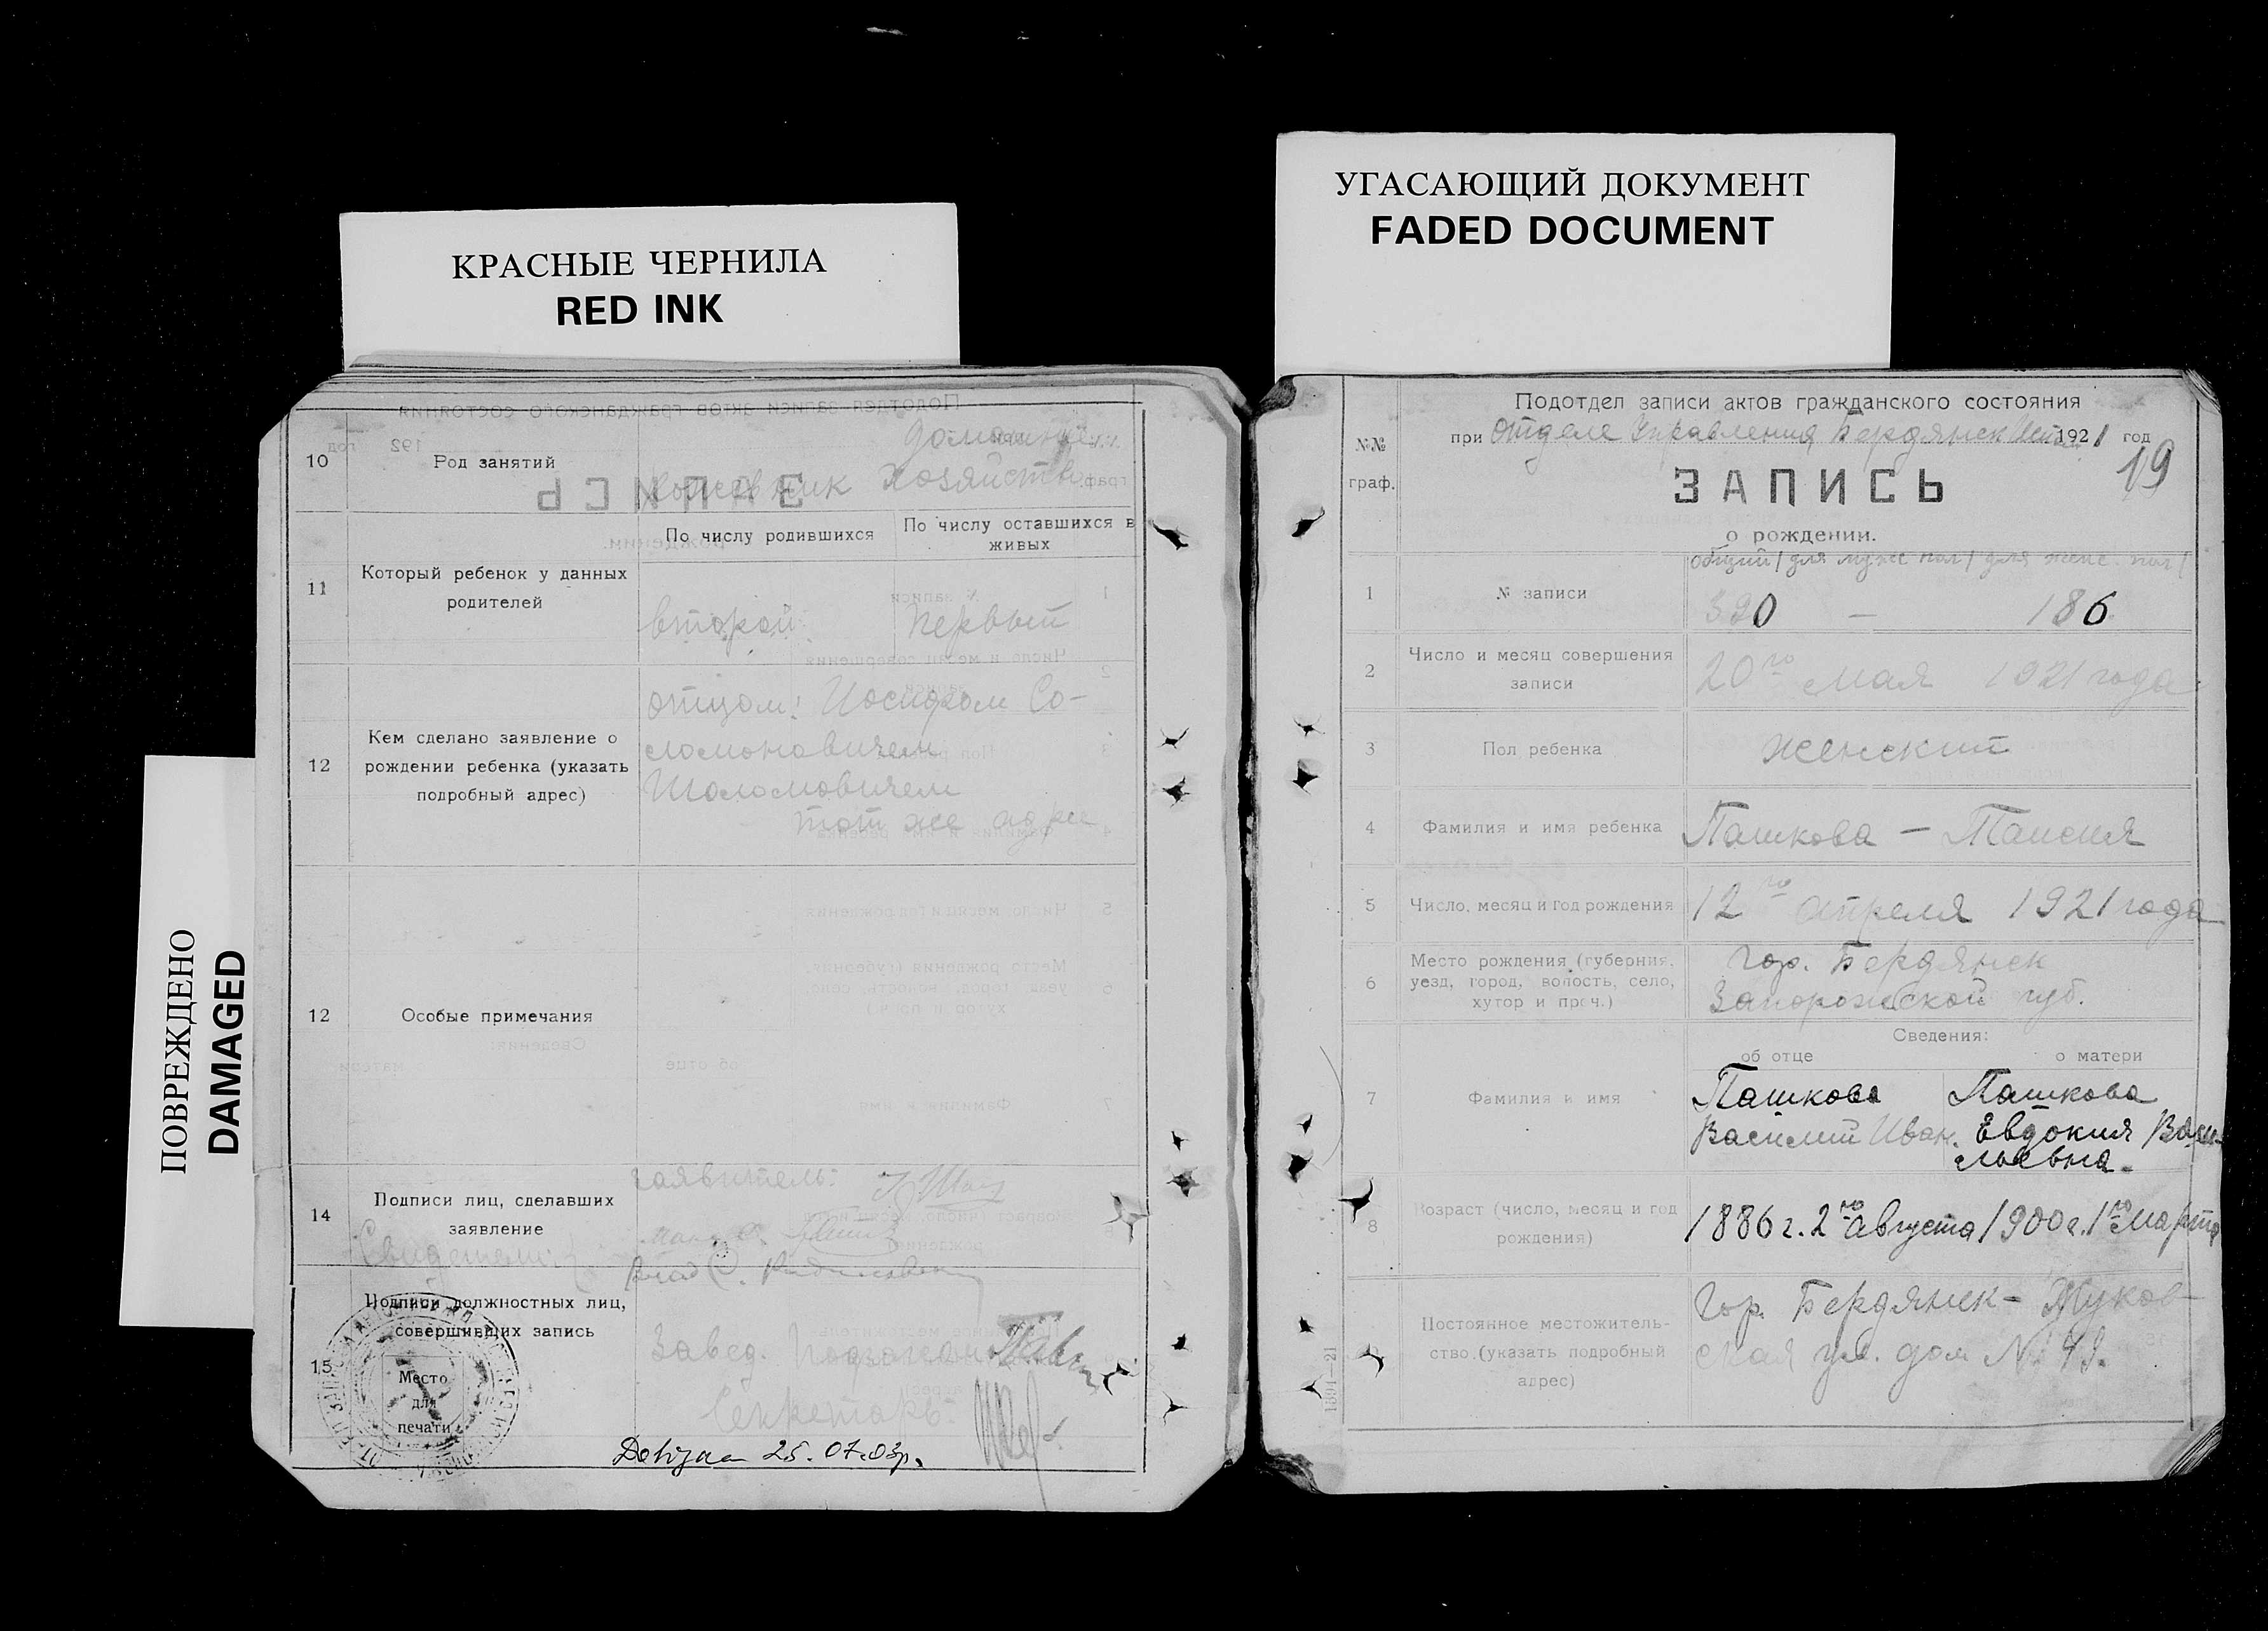 КРАСНЫЕ ЧЕРНИЛА
RED INK
УГАСАЮЩИЙ ДОКУМЕНТ
FADED DOCUMENT
ПОВРЕЖДЕНО
DAMAGED
10 Род занятий
домашнее
хозяйство
11 Который ребенок у данных
родителей
По числу родившихся
По числу оставшихся в
живых
второй
первый
12 Кем сделано заявление о
рождении ребенка (указать
подробный адрес)
отцом: Иосифом Со-
ломоновичем
Шоломовичем
тот же адрес
12 Особые примечания
14 Подписи лиц, сделавших
заявление
заявитель:
Свидетели:
15 Подписи должностных лиц,
совершивших запись
Место
для
печати
Завед.
Секретарь
25.07.03р.
№№
граф.
Подотдел записи актов гражданского состояния
при Отделе Управления Бердянск 1921 год
19
ЗАПИСЬ
о рождении.
общий / для мужс пол / для женс. пол /
1 № записи
390 — 186
2 Число и месяц совершения
записи
20го мая 1921 года
3 Пол ребенка
женский
4 Фамилия и имя ребенка
Пашкова — Таисия
5 Число, месяц и год рождения
12го апреля 1921 года
6 Место рождения (губерния,
уезд, город, волость, село,
хутор и проч.)
Гор. Бердянск
Запорожской губ.
Сведения:
об отце
о матери
7 Фамилия и имя
Пашкова
Василий Иван.
Пашкова
Евдокия Васи-
льевна.
8 Возраст (число, месяц и год
рождения)
1886 г. 2го Августа
1900 г. 1го Марта
Постоянное местожитель-
ство (указать подробный
адрес)
Гор. Бердянск - Жуков-
ская ул. дом №
1891—21